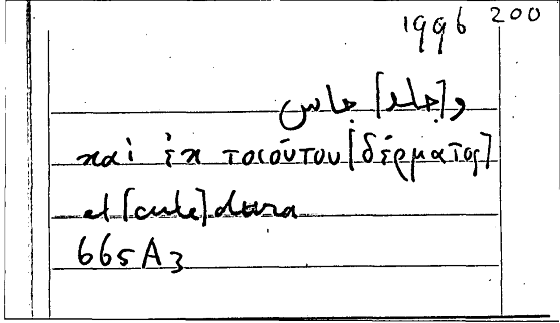 1996 200
و[جلد] جاس
καὶ ἐκ τοιούτου [δέρματος]
et [cute] dura
665A3